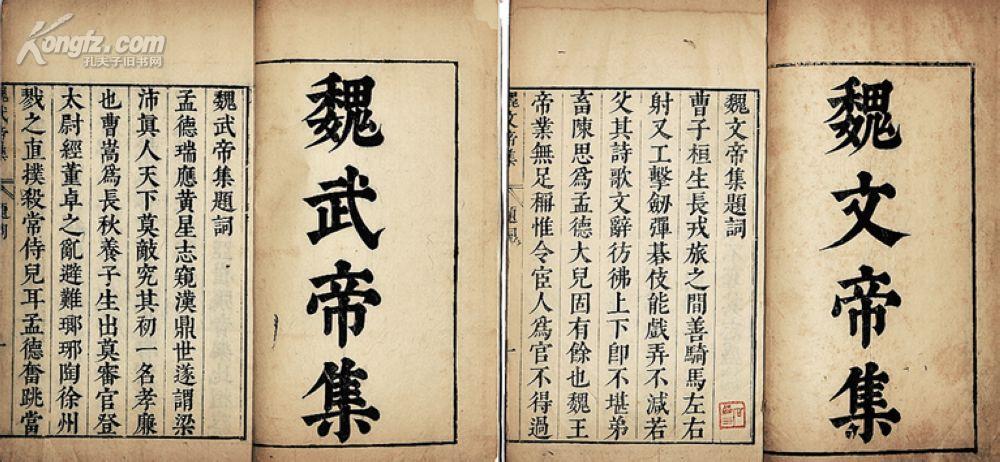 Kongfz.com
孔夫子旧书网
魏武帝集
魏武帝集題詞
孟德瑞應黃星志窺漢鼎世遂謂梁
沛眞人天下莫敵究其初一名孝廉
也曹嵩爲長秋養子生出莫審官登
太尉經董卓之亂避難瑯琊陶徐州
戮之直撲殺常侍兒耳孟德奮跳當
魏文帝集
魏文帝集題詞
曹子桓生長戎旅之間善騎馬左右
射又工擊劒彈碁伎能戲弄不減若
父其詩歌文辭彷彿上下卽不堪弟
畜陳思爲孟德大兒固有餘也魏王
帝業無足稱惟令宦人爲官不得過
魏文帝集